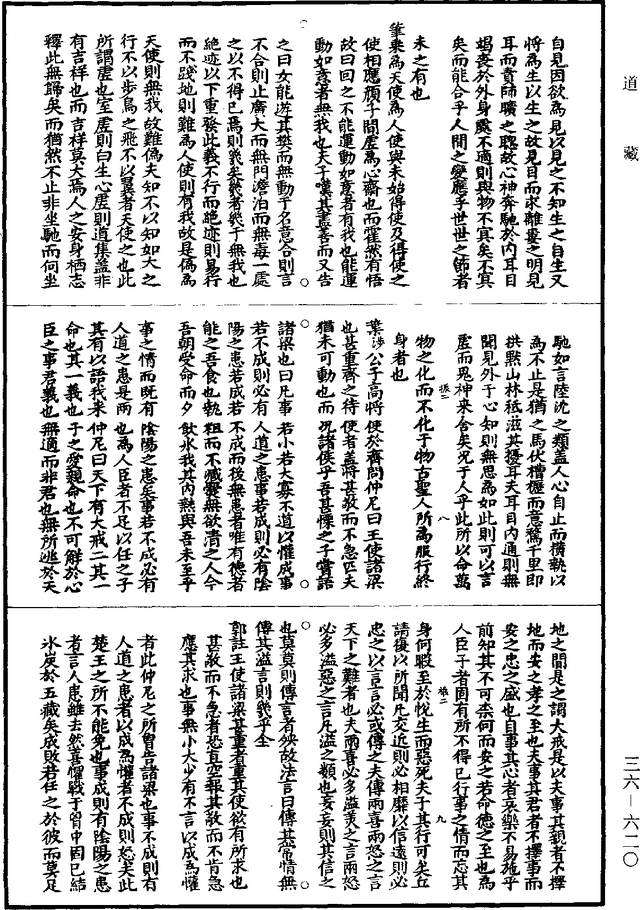 道藏
自見因欲為見以見之不知生之自生又
將為生以生之故見目而求離婁之明見
耳而責師曠之聰故心神奔馳於內耳目
竭喪於外身處不適則與物不宜矣不宜
矣而能合乎人間之變應乎世世之節者
未之有也
筆乘為天使為人使與未始得使及得使之
使相應顏子聞虛為心齋也而霍然有悟
故曰回之不能運動如意者有我也能運
動如意者無我也夫子嘆其盡善而又告
之曰女能遊其樊而無動于名意合則言
不合則止廣大而無門澹泊而無毒一處
之以不得已焉則幾矣幾者幾于無我也
絕迹以下重發此義不行而絕迹則易行
而不踐地則難為人使則有我故是偽為
天使則無我故難偽夫知不以知如天之
行不以步鳥之飛不以翼者天使之也此
所謂虛也室虛則白生心虛則道集蓋非
有吉祥也而吉祥莫大焉人之安身栖志
釋此無歸矣而猶然不止非坐馳而何坐
馳如言陸沈之類蓋人心自止而橫執以
為不止是猶之馬伏槽櫪而意騖千里即
拱默山林秪滋其擾耳夫耳目內通則無
聞見外于心知則無思為如此則可以言
虛而鬼神來舍矣况于人乎此所以命萬
物之化而不化于物古聖人所為服行終
身者也
葉公子高將使於齊問仲尼曰王使諸梁
也甚重齊之待使者蓋將甚敬而不急匹夫
猶未可動也而况諸侯乎吾甚慄之子嘗語
諸梁也曰凡事若小若大寡不道以懽成事
若不成則必有人道之患事若成則必有陰
陽之患若成若不成而後無患者唯有德者
能之吾食也執粗而不臧爨無欲清之人今
吾朝受命而夕飲冰我其內熱與吾未至乎
事之情而既有陰陽之患矣事若不成必有
人道之患是兩也為人臣者不足以任之子
其有以語我來仲尼曰天下有大戒二其一
命也其一義也子之愛親命也不可解於心
臣之事君義也無適而非君也無所逃於天
地之間是之謂大戒是以夫事其親者不擇
地而安之孝之至也夫事其君者不擇事而
安之忠之盛也自事其心者哀樂不易施乎
前知其不可柰何而安之若命德之至也為
人臣子者固有所不得已行事之情而忘其
身何暇至於悅生而惡死夫子其行可矣丘
請復以所聞凡交近則必相靡以信遠則必
忠之以言言必或傳之夫傳兩喜兩怒之言
天下之難者也夫兩喜必多溢美之言兩怒
必多溢惡之言凡溢之類也妄妄則其信之
也莫莫則傳言者殃故法言曰傳其常情無
傳其溢言則幾乎全
郭註王使諸梁甚重者重其使欲有所求也
甚敬而不急者恐直空報其敬而不肯急
應其求也事無小大少有不言以成為懽
者此仲尼之所曾告諸梁也事不成則有
人道之患者以成為懽者不成則怒矣此
楚王之所不能免也事成則有陰陽之患
者言人患雖去然喜懼戰于胷中固已結
冰炭於五藏矣成敗若任之於彼而莫足
三六—六二〇